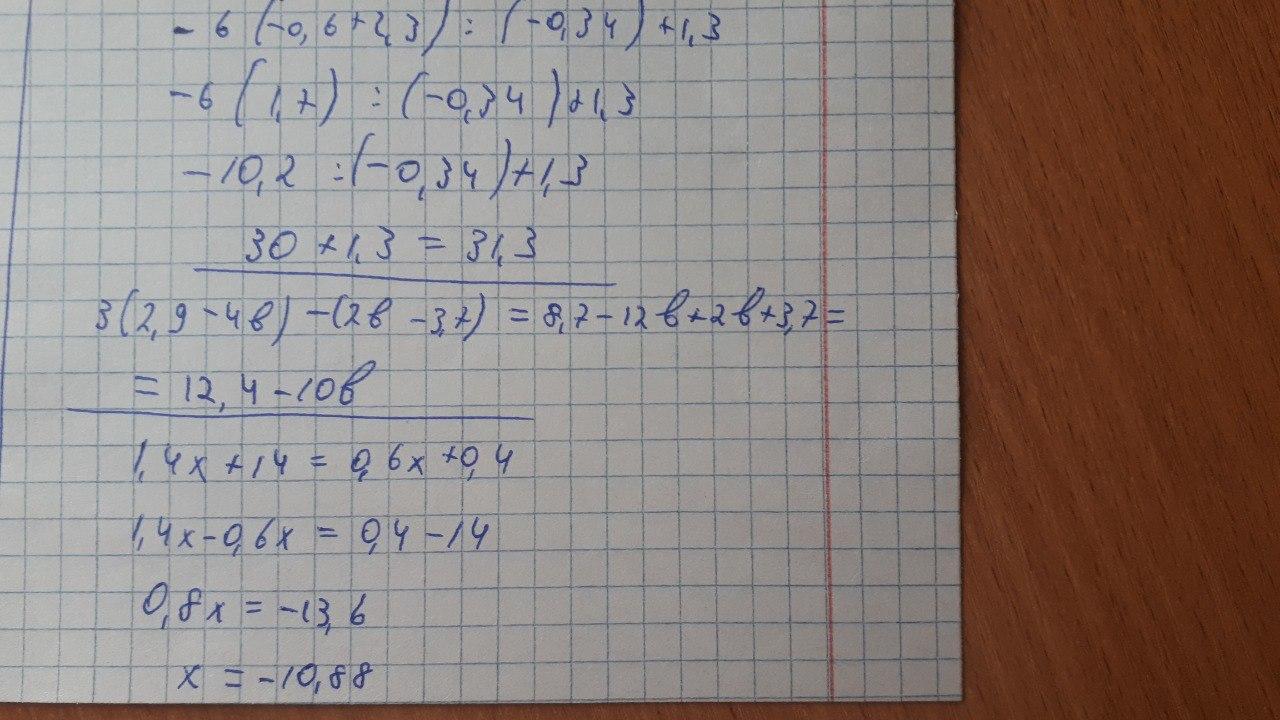 - 6 (-0,6+2,3) : (-0,34) +1,3
-6 (1,7) : (-0,34) +1,3
-10,2 : (-0,34)+1,3
30 +1,3 = 31,3
3(2,9 -4в) -(2в -3,7) = 8,7-12в+2в+3,7=
= 12,4 -10в
1,4x +14 = 0,6x +0,4
1,4x-0,6x = 0,4 -14
0,8x = -13,6
x = -10,88